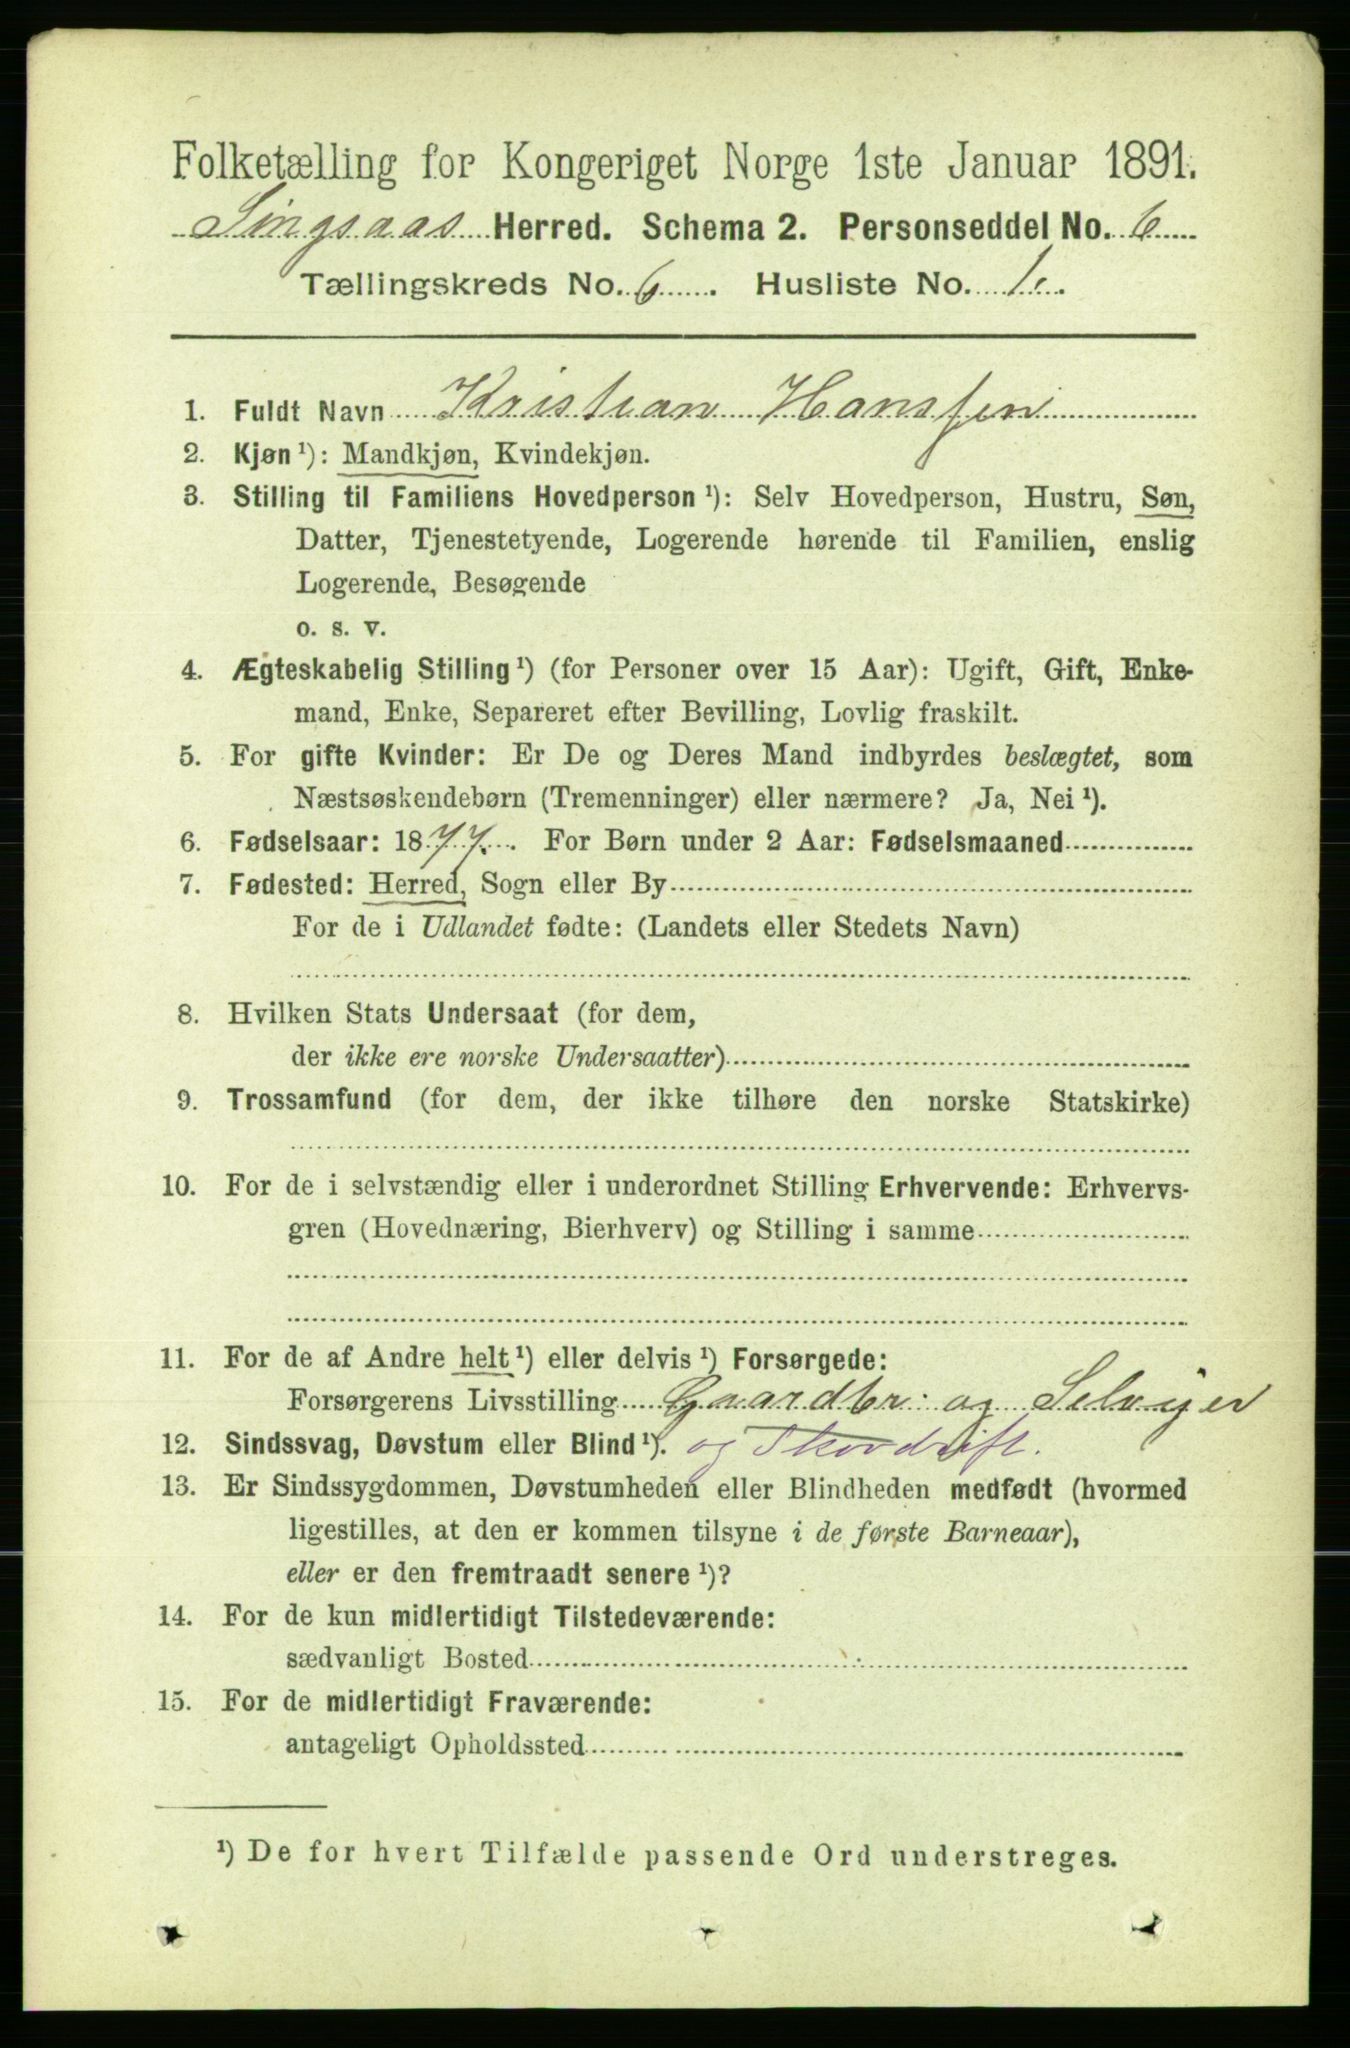 Folketælling for Kongeriget Norge 1ste Januar 1891.
Singsaas Herred. Schema 2. Personseddel No. 6
Tællingskreds No. 6 . Husliste No. 1.
1. Fuldt Navn Kristian Hanssen
2. Kjøn ¹): Mandkjøn, Kvindekjøn.
3. Stilling til Familiens Hovedperson ¹): Selv Hovedperson, Hustru, Søn,
Datter, Tjenestetyende, Logerende hørende til Familien, enslig
Logerende, Besøgende
o. s. v.
4. Ægteskabelig Stilling ¹) (for Personer over 15 Aar): Ugift, Gift, Enke-
mand, Enke, Separeret efter Bevilling, Lovlig fraskilt.
5. For gifte Kvinder: Er De og Deres Mand indbyrdes beslægtet, som
Næstsøskendebørn (Tremenninger) eller nærmere? Ja, Nei ¹).
6. Fødselsaar: 1877. For Børn under 2 Aar: Fødselsmaaned
7. Fødested: Herred, Sogn eller By
For de i Udlandet fødte: (Landets eller Stedets Navn)
8. Hvilken Stats Undersaat (for dem,
der ikke ere norske Undersaatter)
9. Trossamfund (for dem, der ikke tilhøre den norske Statskirke)
10. For de i selvstændig eller i underordnet Stilling Erhvervende: Erhvervs-
gren (Hovednæring, Bierhverv) og Stilling i samme
11. For de af Andre helt ¹) eller delvis ¹) Forsørgede:
Forsørgerens Livsstilling Gaardbr: og Selvejer
12. Sindssvag, Døvstum eller Blind ¹). og Skovdrift.
13. Er Sindssygdommen, Døvstumheden eller Blindheden medfødt (hvormed
ligestilles, at den er kommen tilsyne i de første Barneaar),
eller er den fremtraadt senere ¹)?
14. For de kun midlertidigt Tilstedeværende:
sædvanligt Bosted
15. For de midlertidigt Fraværende:
antageligt Opholdssted
¹) De for hvert Tilfælde passende Ord understreges.